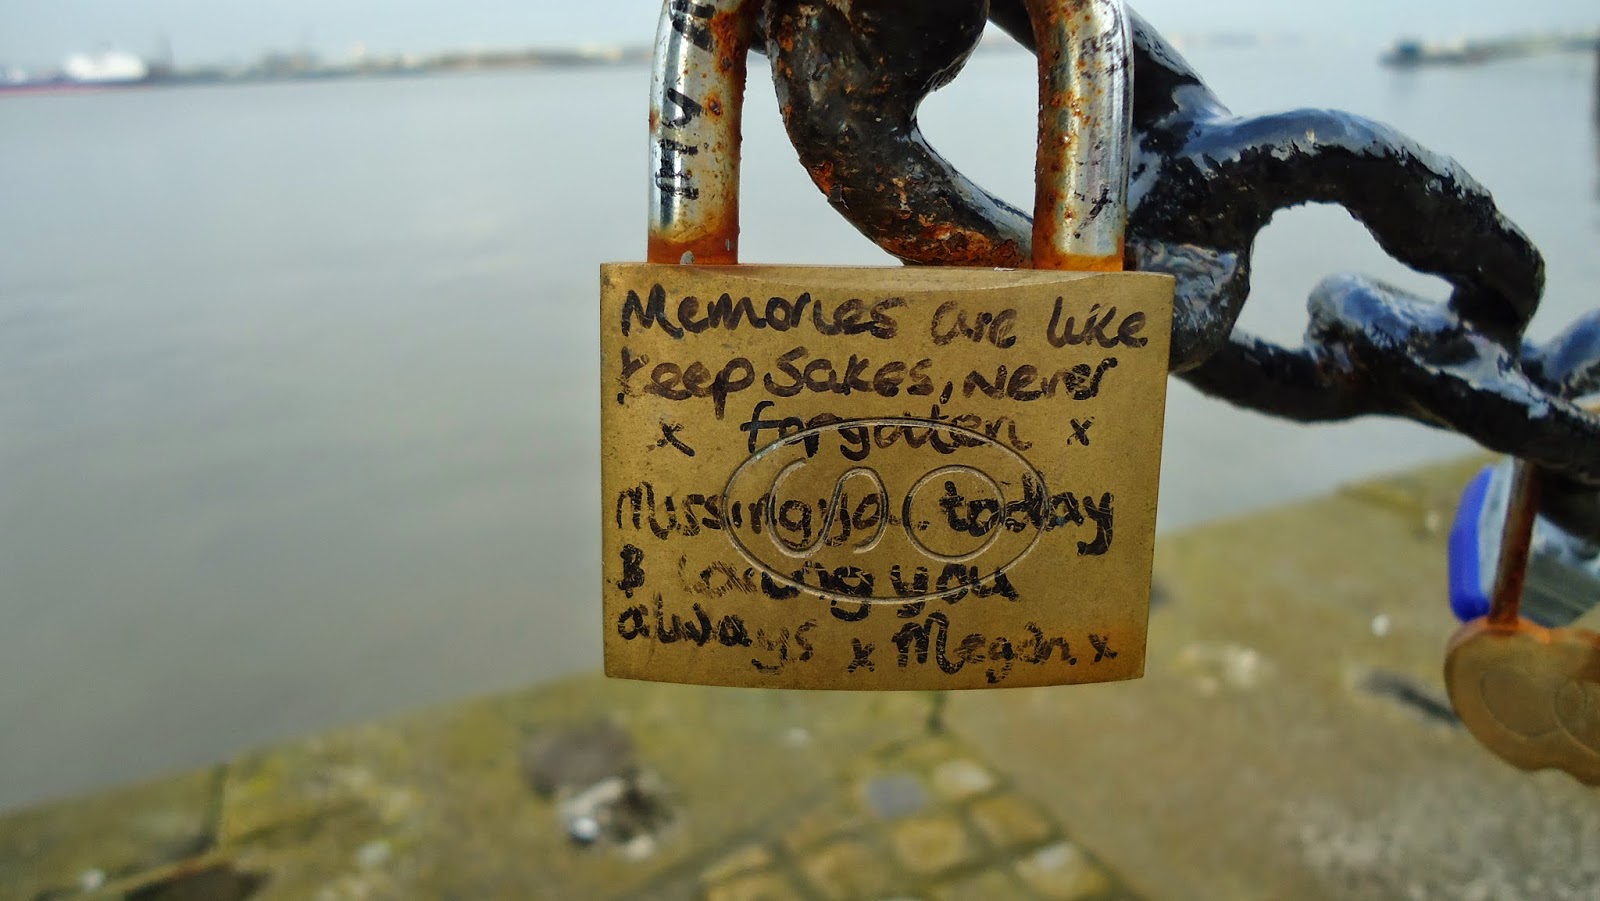 Memories are like
keep sakes, never
x forgotten x
missing you today
& loving you
always x Megan. x